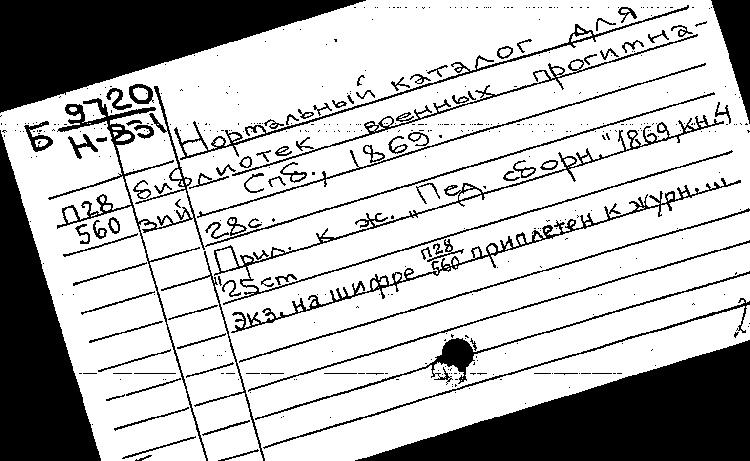 Б 9720
Н-ВЭ1
П28
560
Нормальный каталог для
библиотек военных прогимна-
зий. Спб., 1869.
28с.
Прил. к ж. „Пед. сборн." 1869, кн. 4
25cm
Экз. на шифре П28/560 приплетен к журн. ...
2